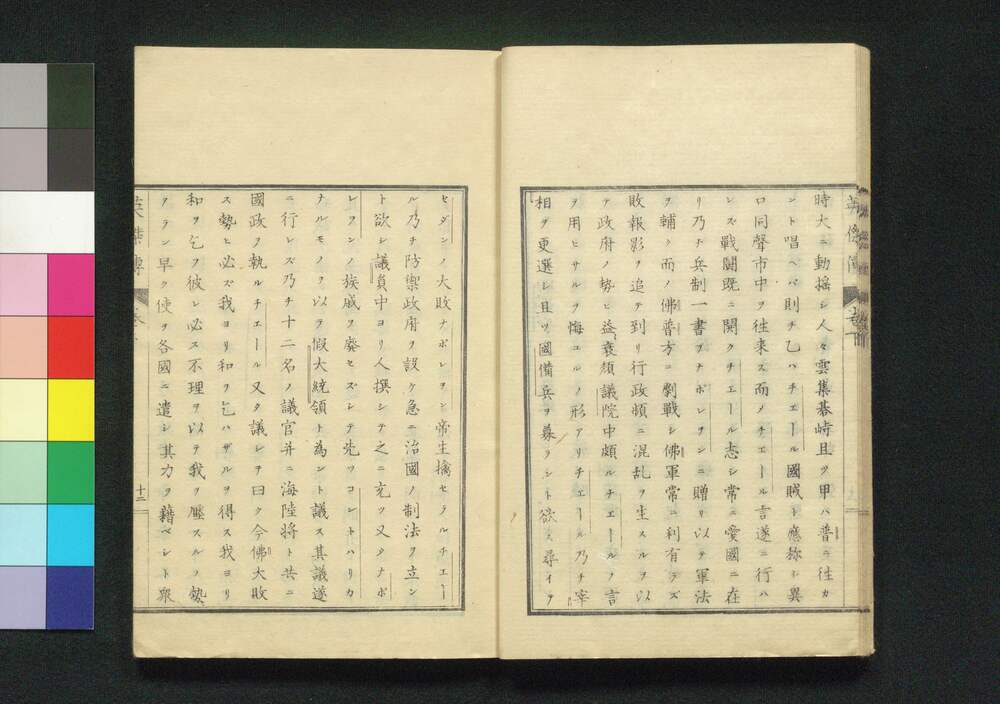 時大ニ動揺シ人々雲集碁峙且ツ甲ハ普ニ往カ
ント唱ヘバ則チ乙ハチエール國賊ト應稱シ異
口同聲市中ヲ往来ス而メチエール言遂ニ行ハ
レズ戰闘既ニ開クチエール志シ常ニ愛國ニ在
リ乃チ兵制一書ヲナポレヲンニ贈リ以テ軍法
ヲ輔ク而ノ佛普方ニ劇戰シ佛軍常ニ利有ラズ
敗報影ヲ追テ到リ行政頗ニ混乱ヲ生スルヲ以
テ政府ノ勢ヒ益衰頽議院中頗ルチエールノ言
ヲ用ヒサルヲ悔ユルノ形アリチエール乃チ宰
相ヲ更選シ且ツ國備兵ヲ募ラント欲ス尋イテ
セダンノ大敗ナポレヲン帝生擒セラルチエー
ル乃チ防禦政府ヲ設ケ急ニ治國ノ制法ヲ立ン
ト欲シ議員中ヨリ人撰シテ之ニ充ツ又タナポ
レヲンノ族戚ヲ廢セズシテ先ツコントハリカ
ナルモノヲ以テ假大統領ト為ント議ス其議遂
ニ行レズ乃チ十二名ノ議官并ニ海陸将ト共ニ
國政ヲ執ルチエール又タ議シテ曰ク今佛大敗
ス勢ヒ必ズ我ヨリ和ヲ乞ハザルヲ得ス我ヨリ
和ヲ乞フ彼レ必ス不理ヲ以テ我ヲ壓スルノ勢
ヲラン早ク使ヲ各國ニ遣シ其力ヲ藉ベシト衆
英傑傳
十二